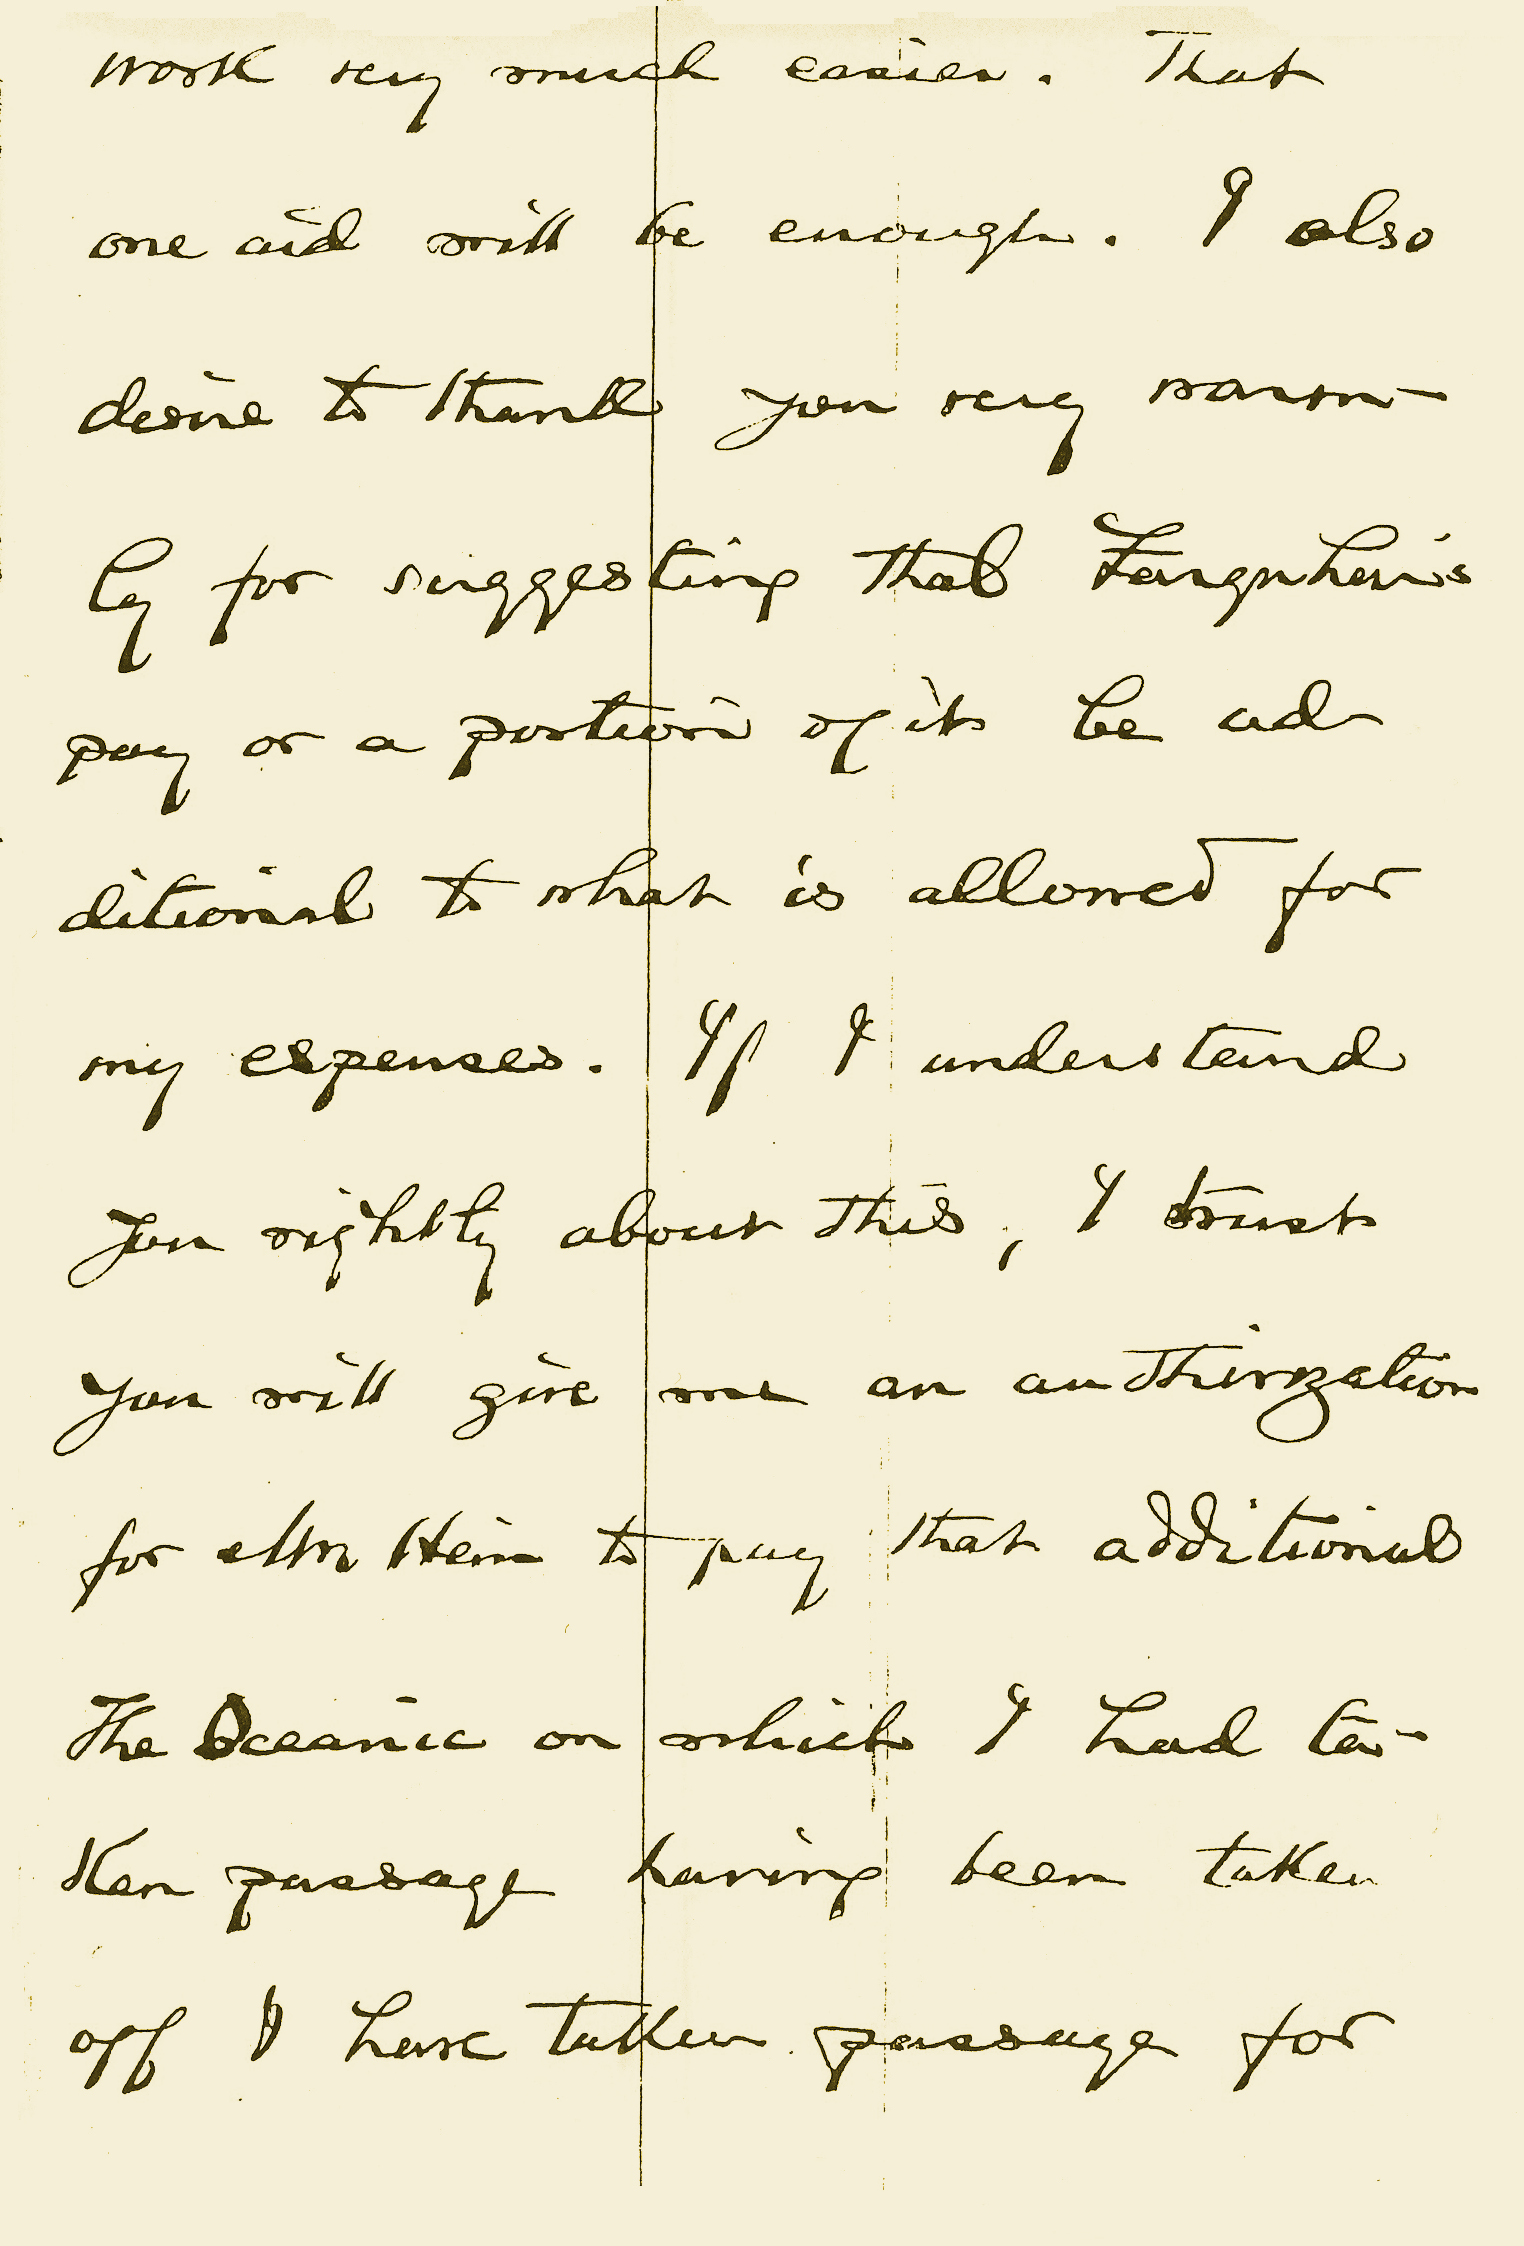 work very much easier. That
one aid will be enough. I also
desire to thank you very warm-
ly for suggesting that Farquhar's
pay or a portion of it be ad
ditional to what is allowed for
my expenses. If I understand
you rightly about this, I trust
you will give me an authorization
for Mr Hein to pay that additional
The Oceanic on which I had ta-
ken passage having been taken
off I have taken passage for